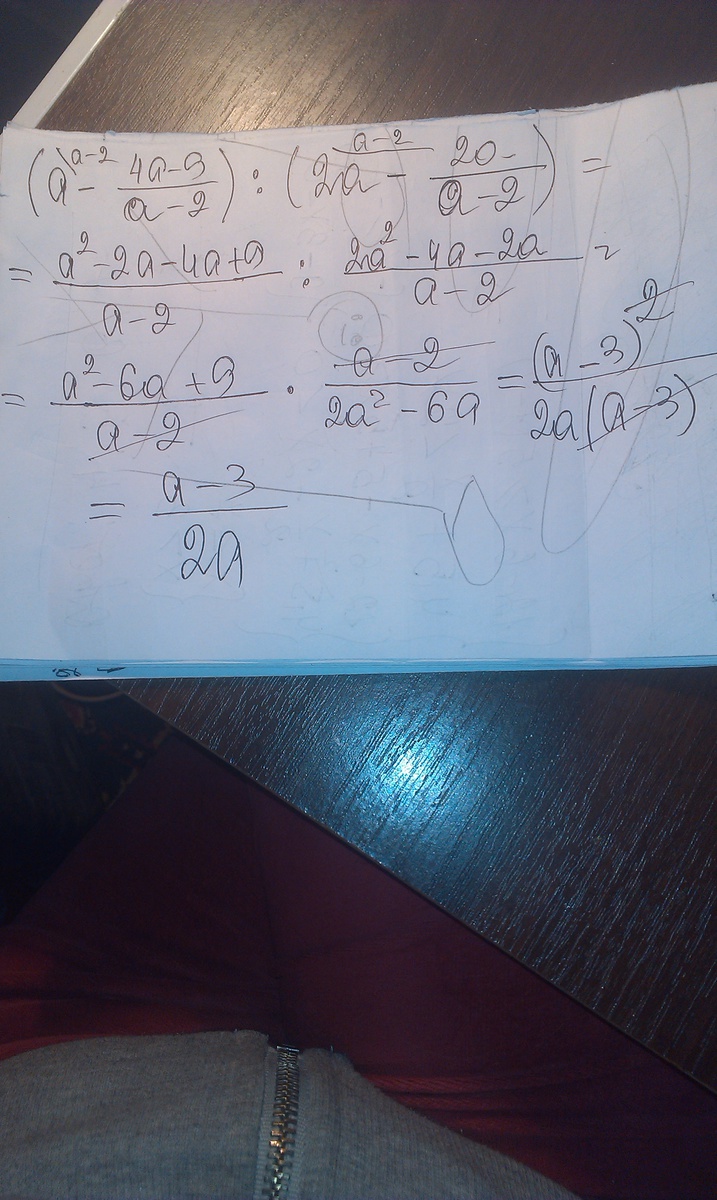 (a^{\a-2} - \frac{4a-9}{a-2}) : (2a^{\overline{a-2}} - \frac{2a}{a-2}) =
= \frac{a^2-2a-4a+9}{a-2} : \frac{2a^2-4a-2a}{a-2} =
= \frac{a^2-6a+9}{a-2} · \frac{a-2}{2a^2-6a} = \frac{(a-3)^2}{2a(a-3)}
= \frac{a-3}{2a}